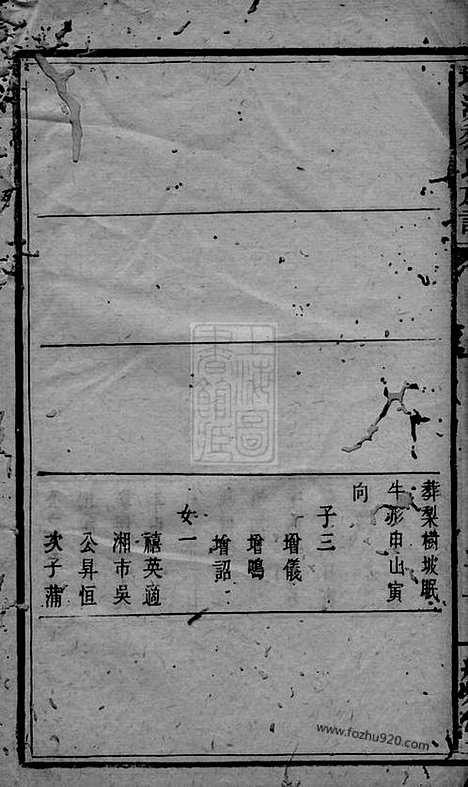 葬梨樹坡眠
牛形申山寅
向
子三
增儀
增鳴
增詔
女一
禧英適
湘市吳
公昇恒
次子蒲
www.fozhu920.com